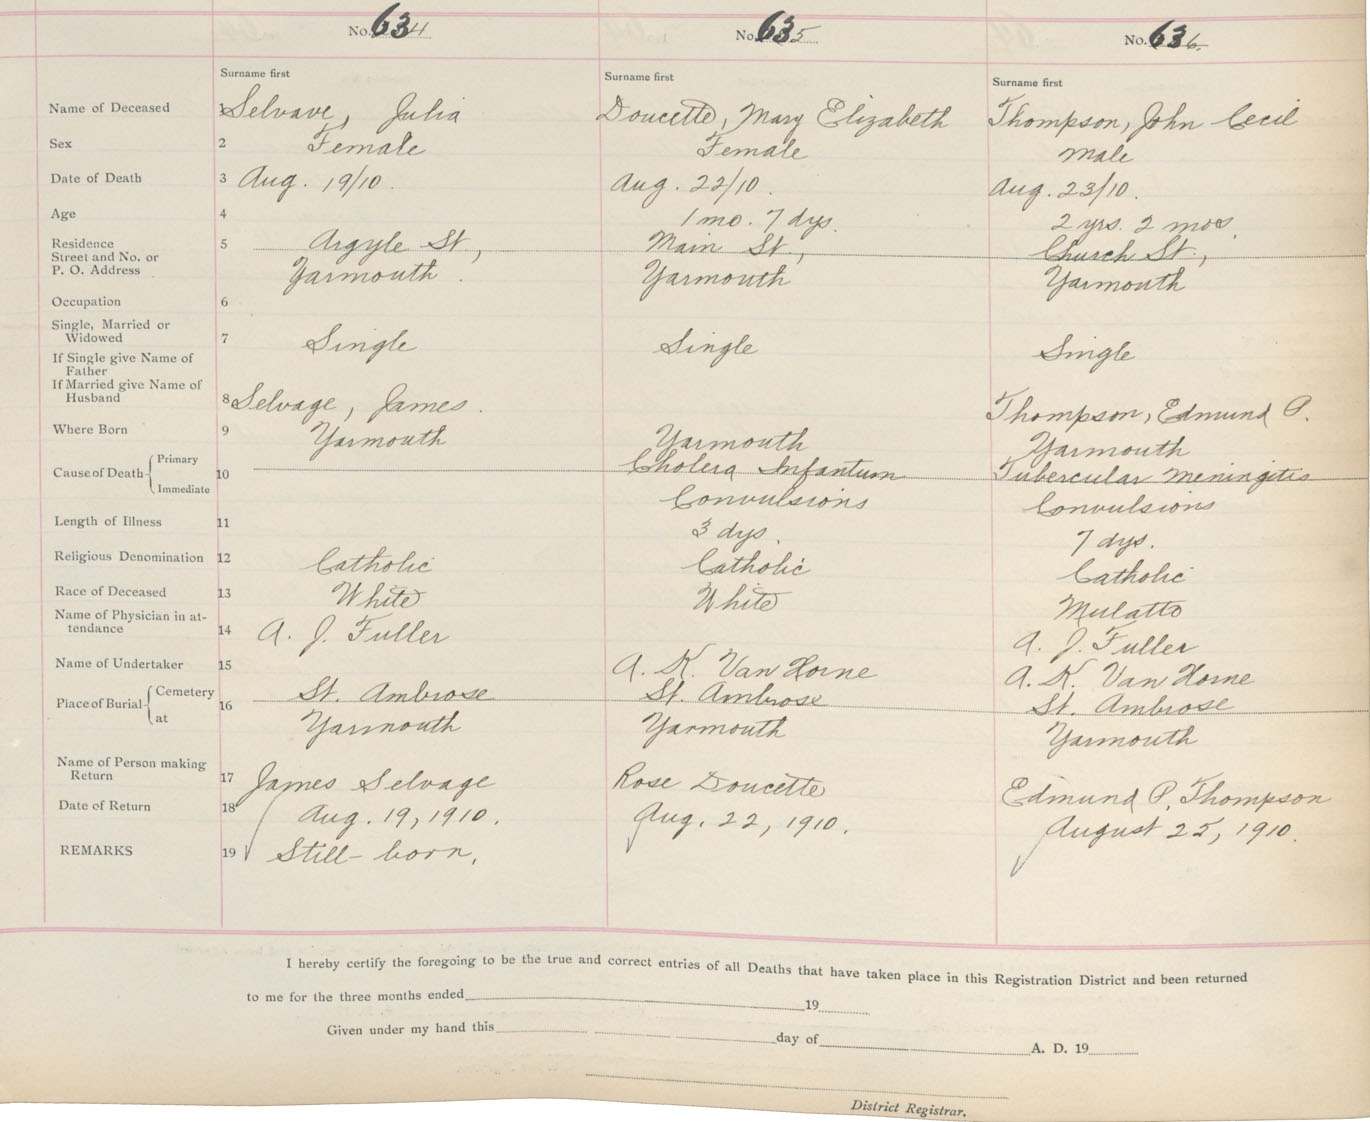 No. 634 No. 635 No. 636
Surname first Surname first Surname first
Name of Deceased 1 Selvave, Julia Doucette, Mary Elizabeth Thompson, John Cecil
Sex 2 Female Female Male
Date of Death 3 Aug. 19/10. Aug. 22/10. Aug. 23/10.
Age 4 1 mo. 7 dys. 2 yrs. 2 mos.
Residence 5 Argyle St., Main St., Church St.,
Street and No. or
P. O. Address Yarmouth. Yarmouth Yarmouth
Occupation 6
Single, Married or
Widowed 7 Single Single Single
If Single give Name of
Father
If Married give Name of
Husband 8 Selvage, James. Thompson, Edmund P.
Where Born 9 Yarmouth Yarmouth Yarmouth
Cause of Death Primary 10 Cholera Infantum Tubercular Meningitis
Immediate Convulsions Convulsions
Length of Illness 11 3 dys. 7 dys.
Religious Denomination 12 Catholic Catholic Catholic
Race of Deceased 13 White White Mulatto
Name of Physician in at-
tendance 14 A. J. Fuller A. J. Fuller
Name of Undertaker 15 A. K. Van Horne A. K. Van Horne
Place of Burial Cemetery 16 St. Ambrose St. Ambrose St. Ambrose
at Yarmouth Yarmouth Yarmouth
Name of Person making
Return 17 James Selvage Rose Doucette Edmund P. Thompson
Date of Return 18 Aug. 19, 1910. Aug. 22, 1910. August 25, 1910.
REMARKS 19 Still-born.
I hereby certify the foregoing to be the true and correct entries of all Deaths that have taken place in this Registration District and been returned
to me for the three months ended 19
Given under my hand this day of A. D. 19
District Registrar.